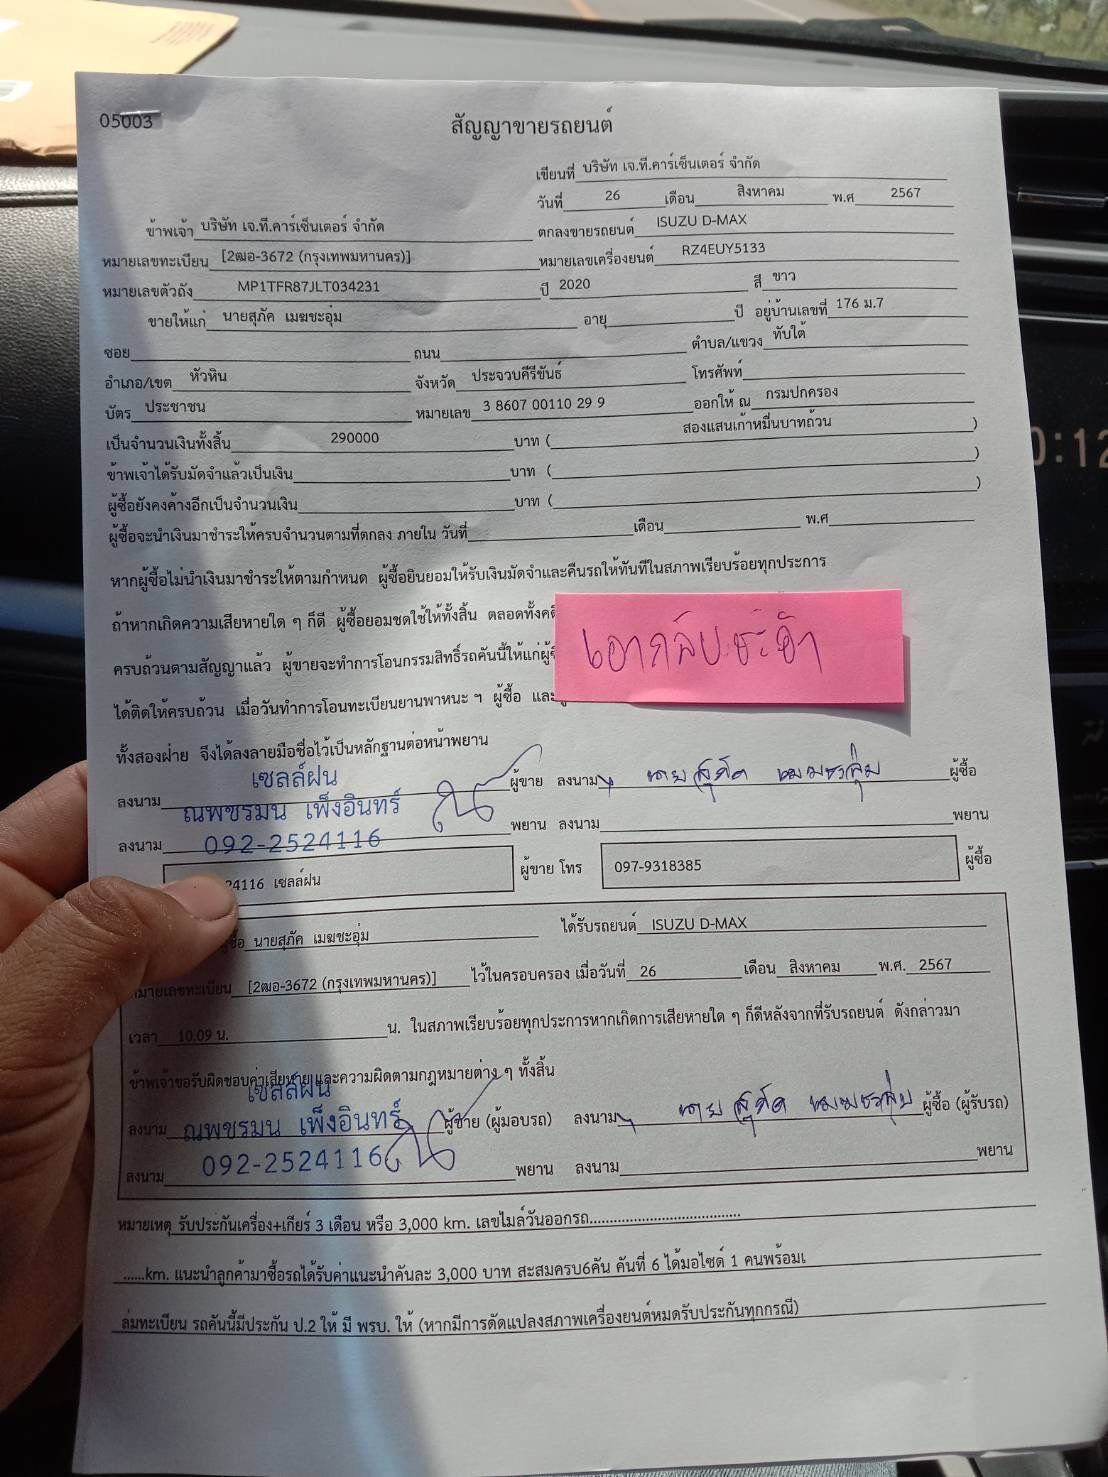 05003
สัญญาขายรถยนต์
เขียนที่ บริษัท เจ.ที.คาร์เซ็นเตอร์ จำกัด
วันที่ 26 เดือน สิงหาคม พ.ศ 2567
ข้าพเจ้า บริษัท เจ.ที.คาร์เซ็นเตอร์ จำกัด ตกลงขายรถยนต์ ISUZU D-MAX
หมายเลขทะเบียน [2ฒอ-3672 (กรุงเทพมหานคร)] หมายเลขเครื่องยนต์ RZ4EUY5133
หมายเลขตัวถัง MP1TFR87JLT034231 ปี 2020 สี ขาว
ขายให้แก่ นายสุภัค เมฆชะอุ่ม อายุ ปี อยู่บ้านเลขที่ 176 ม.7
ซอย ถนน ตำบล/แขวง ทับใต้
อำเภอ/เขต หัวหิน จังหวัด ประจวบคีรีขันธ์ โทรศัพท์
บัตร ประชาชน หมายเลข 3 8607 00110 29 9 ออกให้ ณ กรมปกครอง
เป็นจำนวนเงินทั้งสิ้น 290000 บาท ( สองแสนเก้าหมื่นบาทถ้วน )
ข้าพเจ้าได้รับมัดจำแล้วเป็นเงิน บาท ( )
ผู้ซื้อยังคงค้างอีกเป็นจำนวนเงิน บาท ( )
ผู้ซื้อจะนำเงินมาชำระให้ครบจำนวนตามที่ตกลง ภายใน วันที่ เดือน พ.ศ
หากผู้ซื้อไม่นำเงินมาชำระให้ตามกำหนด ผู้ซื้อยินยอมให้รับเงินมัดจำและคืนรถให้ทันทีในสภาพเรียบร้อยทุกประการ
ถ้าหากเกิดความเสียหายใด ๆ ก็ดี ผู้ซื้อยอมชดใช้ให้ทั้งสิ้น ตลอดทั้ง
ครบถ้วนตามสัญญาแล้ว ผู้ขายจะทำการโอนกรรมสิทธิ์รถคันนี้ให้แก่
ได้ติดให้ครบถ้วน เมื่อวันทำการโอนทะเบียนยานพาหนะ ฯ ผู้ซื้อ และ
ทั้งสองฝ่าย จึงได้ลงลายมือชื่อไว้เป็นหลักฐานต่อหน้าพยาน
เซลล์ฝน
ลงนาม ผู้ขาย ลงนาม นายสุภัค เมฆชะอุ่ม ผู้ซื้อ
ณพชรมน เพ็งอินทร์
ลงนาม 092-2524116 พยาน ลงนาม พยาน
24116 เซลล์ฝน ผู้ขาย โทร 097-9318385 ผู้ซื้อ
นายสุภัค เมฆชะอุ่ม ได้รับรถยนต์ ISUZU D-MAX
หมายเลขทะเบียน [2ฒอ-3672 (กรุงเทพมหานคร)] ไว้ในครอบครอง เมื่อวันที่ 26 เดือน สิงหาคม พ.ศ. 2567
เวลา 10.09 น. น. ในสภาพเรียบร้อยทุกประการหากเกิดการเสียหายใด ๆ ก็ดีหลังจากที่รับรถยนต์ ดังกล่าวมา
ข้าพเจ้าขอรับผิดชอบค่าเสียหายและความผิดตามกฎหมายต่าง ๆ ทั้งสิ้น
เซลล์ฝน
ลงนาม ณพชรมน เพ็งอินทร์ ผู้ขาย (ผู้มอบรถ) ลงนาม นายสุภัค เมฆชะอุ่ม ผู้ซื้อ (ผู้รับรถ)
092-2524116
ลงนาม พยาน ลงนาม พยาน
หมายเหตุ รับประกันเครื่อง+เกียร์ 3 เดือน หรือ 3,000 km. เลขไมล์วันออกรถ......................................
......km. แนะนำลูกค้ามาซื้อรถได้รับค่าแนะนำคันละ 3,000 บาท สะสมครบ6คัน คันที่ 6 ได้มอไซด์ 1 คนพร้อมเ
ล่มทะเบียน รถคันนี้มีประกัน ป.2 ให้ มี พรบ. ให้ (หากมีการดัดแปลงสภาพเครื่องยนต์หมดรับประกันทุกกรณี)